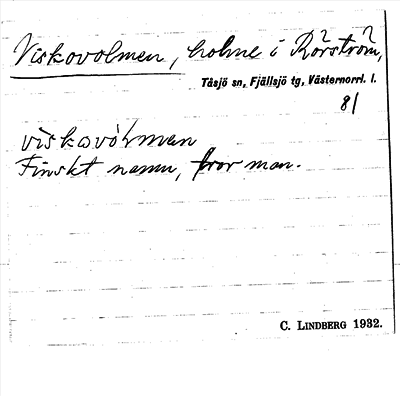 Viskovolmen, holme i Rörström,
Tåsjö sn, Fjällsjö tg, Västernorrl. l.
81
viskovòlmen
Finskt namn, tror man.
C. LINDBERG 1932.